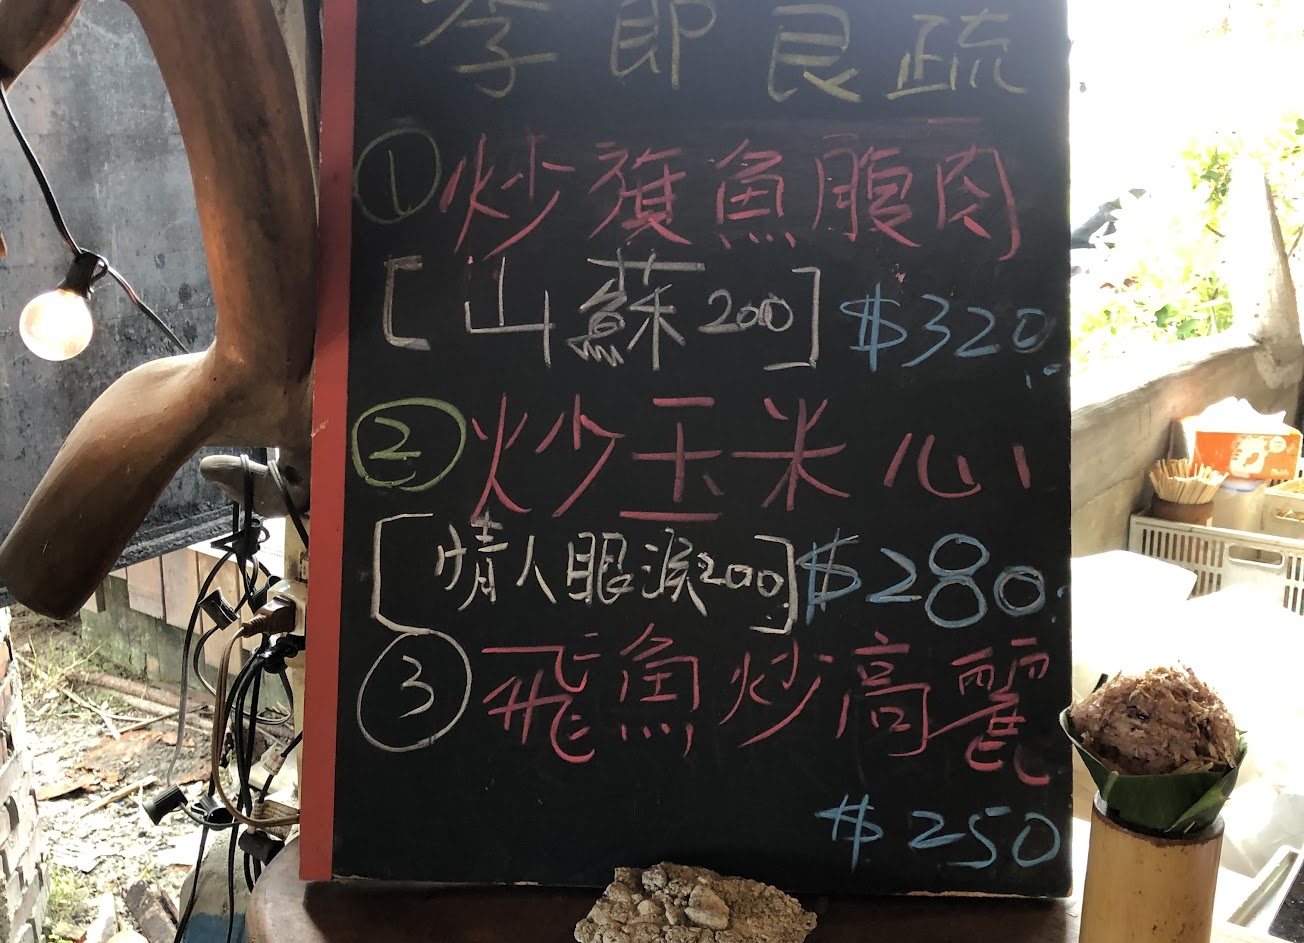 季即良疏
① 炒旗魚腹肉
[山蘇200] $320
② 炒玉米心
[情人眼淚200] $280
③ 飛魚炒高麗
$250